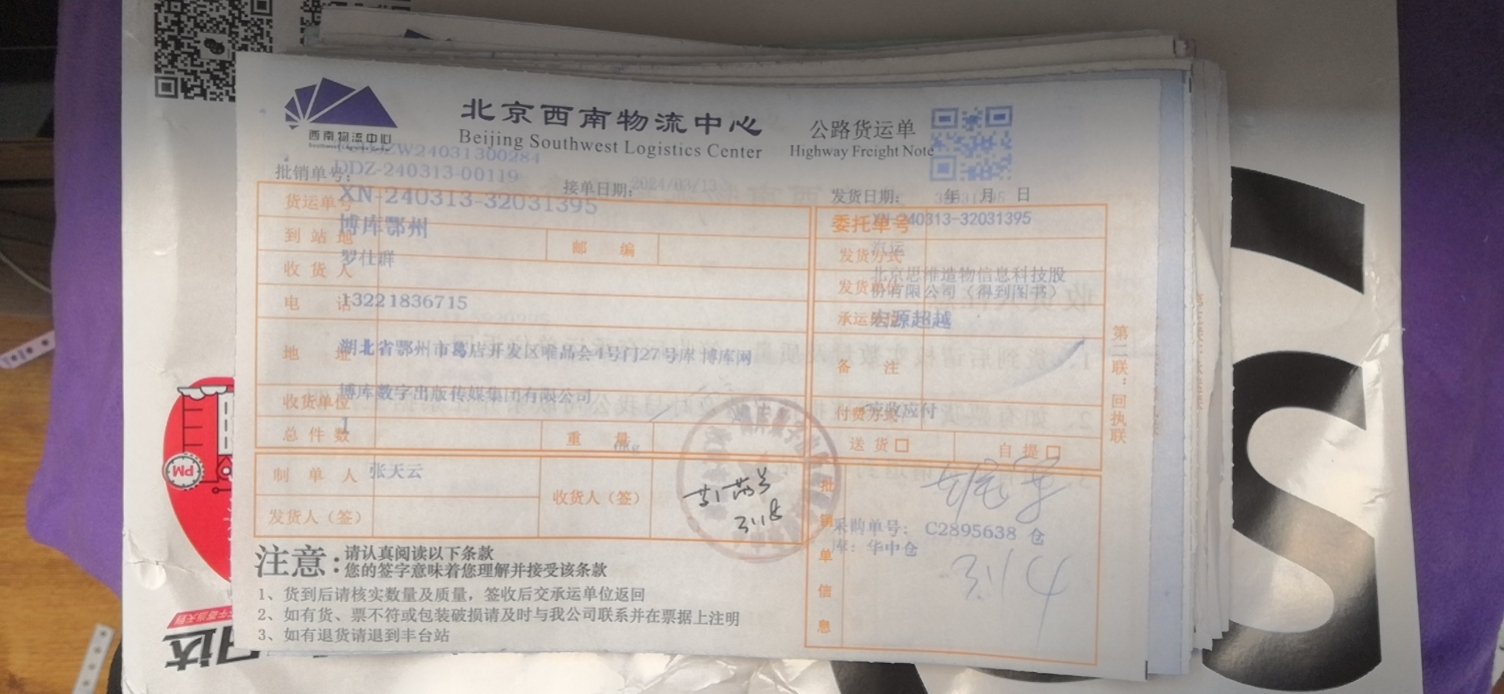 西南物流中心
北京西南物流中心
Beijing Southwest Logistics Center
公路货运单
Highway Freight Note
ZW24031300284
批销单号: DDZ-240313-00119
接单日期: 2024/03/13
发货日期: 年 月 日
货运单号 XN-240313-32031395
委托单号 XN-240313-32031395
到站地 博库鄂州
邮编
发货方式 汽运
收货人 罗仕群
发货单位 北京思维造物信息科技股
份有限公司（得到图书）
电话 13221836715
承运 宏源超越
地址 湖北省鄂州市葛店开发区唯品会4号门27号库 博库网
备注
收货单位 博库数字出版传媒集团有限公司
付费方式 应付
总件数 1
重量 0kg
送货口
自提口
制单人 张天云
收货人（签）
3.18
发货人（签）
批销单信息
采购单号: C2895638 仓
库: 华中仓
3.14
第二联：回执联
注意: 请认真阅读以下条款
您的签字意味着您理解并接受该条款
1、货到后请核实数量及质量，签收后交承运单位返回
2、如有货、票不符或包装破损请及时与我公司联系并在票据上注明
3、如有退货请退到丰台站
PM